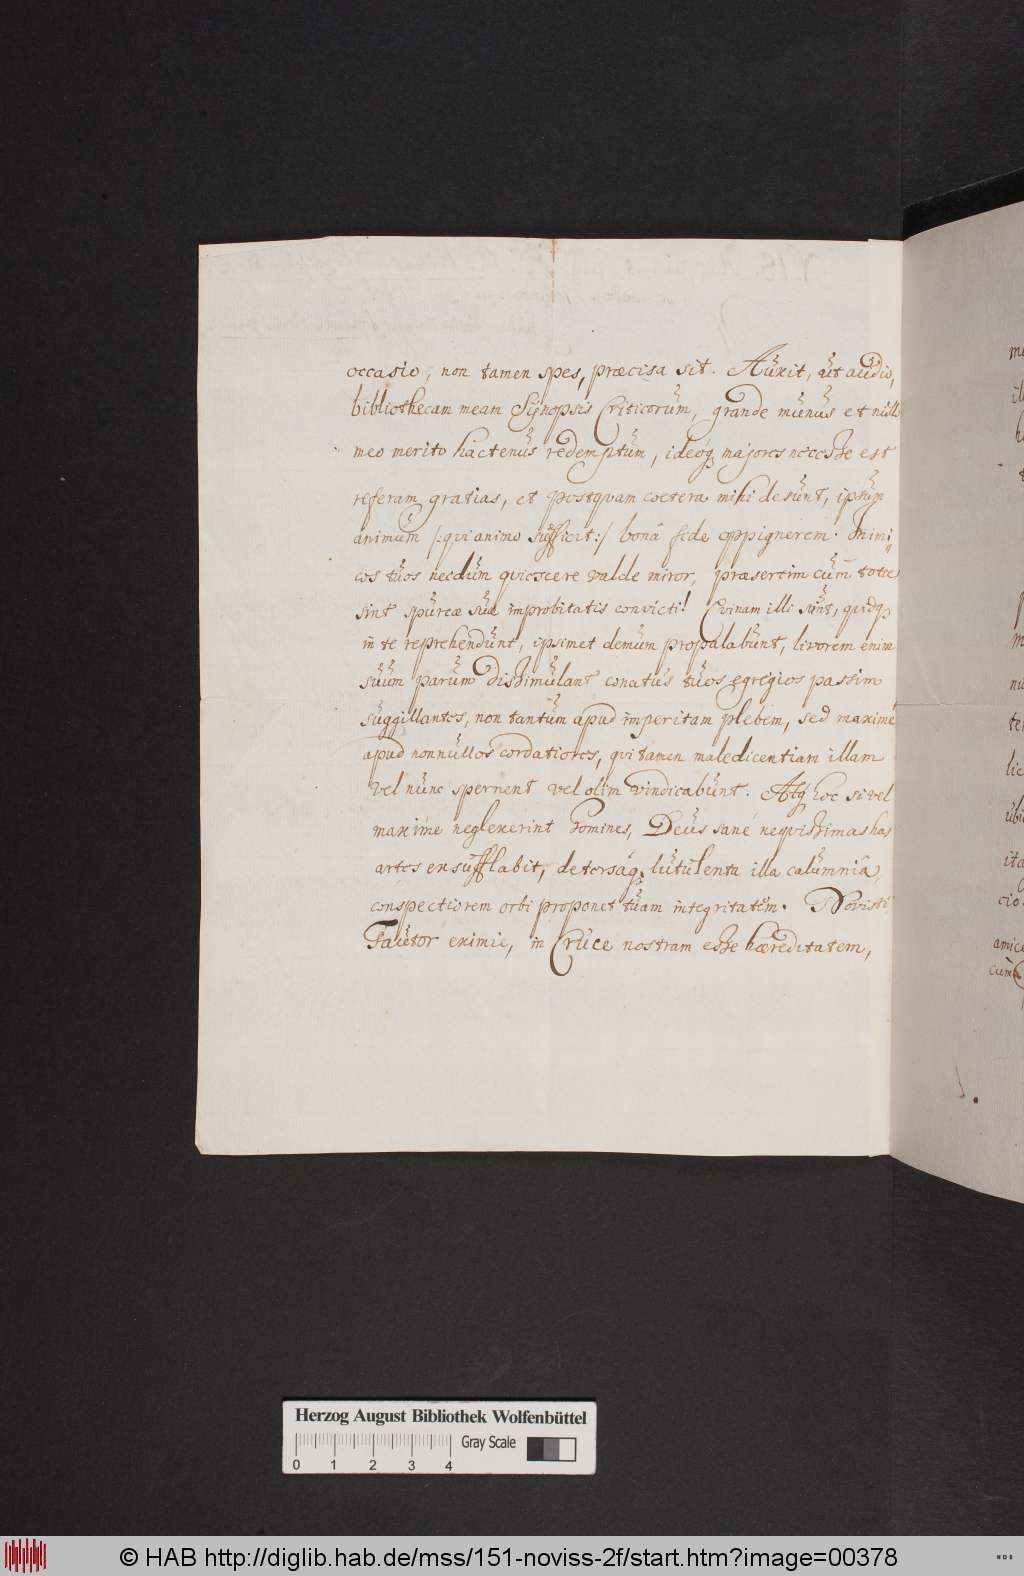 occasio, non tamen spes, præcisa sit. Auxit, ut audio,
bibliothecam meam Synopsis Criticorum, grande munus et nullo
meo merito hactenus redemptum, ideóq majores necesse est
referam gratias, et postquam coetera mihi desunt, ipsum
animum /:qui animo sufficit:/ bonâ fide oppignerem. Inimi
cos tuos necdum quiescere valde miror, præsertim cum toties
sint spurcæ suæ improbitatis convicti! Cuinam illi sunt, quidq
in te reprehendunt, ipsimet demum propalabunt, livorem enim
suum parum dissimulant conatus tuos egregios passim
suggillantes, non tantum apud imperitam plebem, sed maximé
apud nonnullos cordatiores, qui tamen maledicentiam illam
vel nunc spernent vel olim vindicabunt. Atq hoc si vel
maximé neglexerint homines, Deus sané nequissimas has
artes exsufflabit, detersáq lutulenta illa calumniâ,
conspectiorem orbi proponet tuam integritatem. Novisti
Fautor eximie, in Cruce nostram esse hæreditatem,
Herzog August Bibliothek Wolfenbüttel
Gray Scale
0 1 2 3 4
© HAB http://diglib.hab.de/mss/151-noviss-2f/start.htm?image=00378